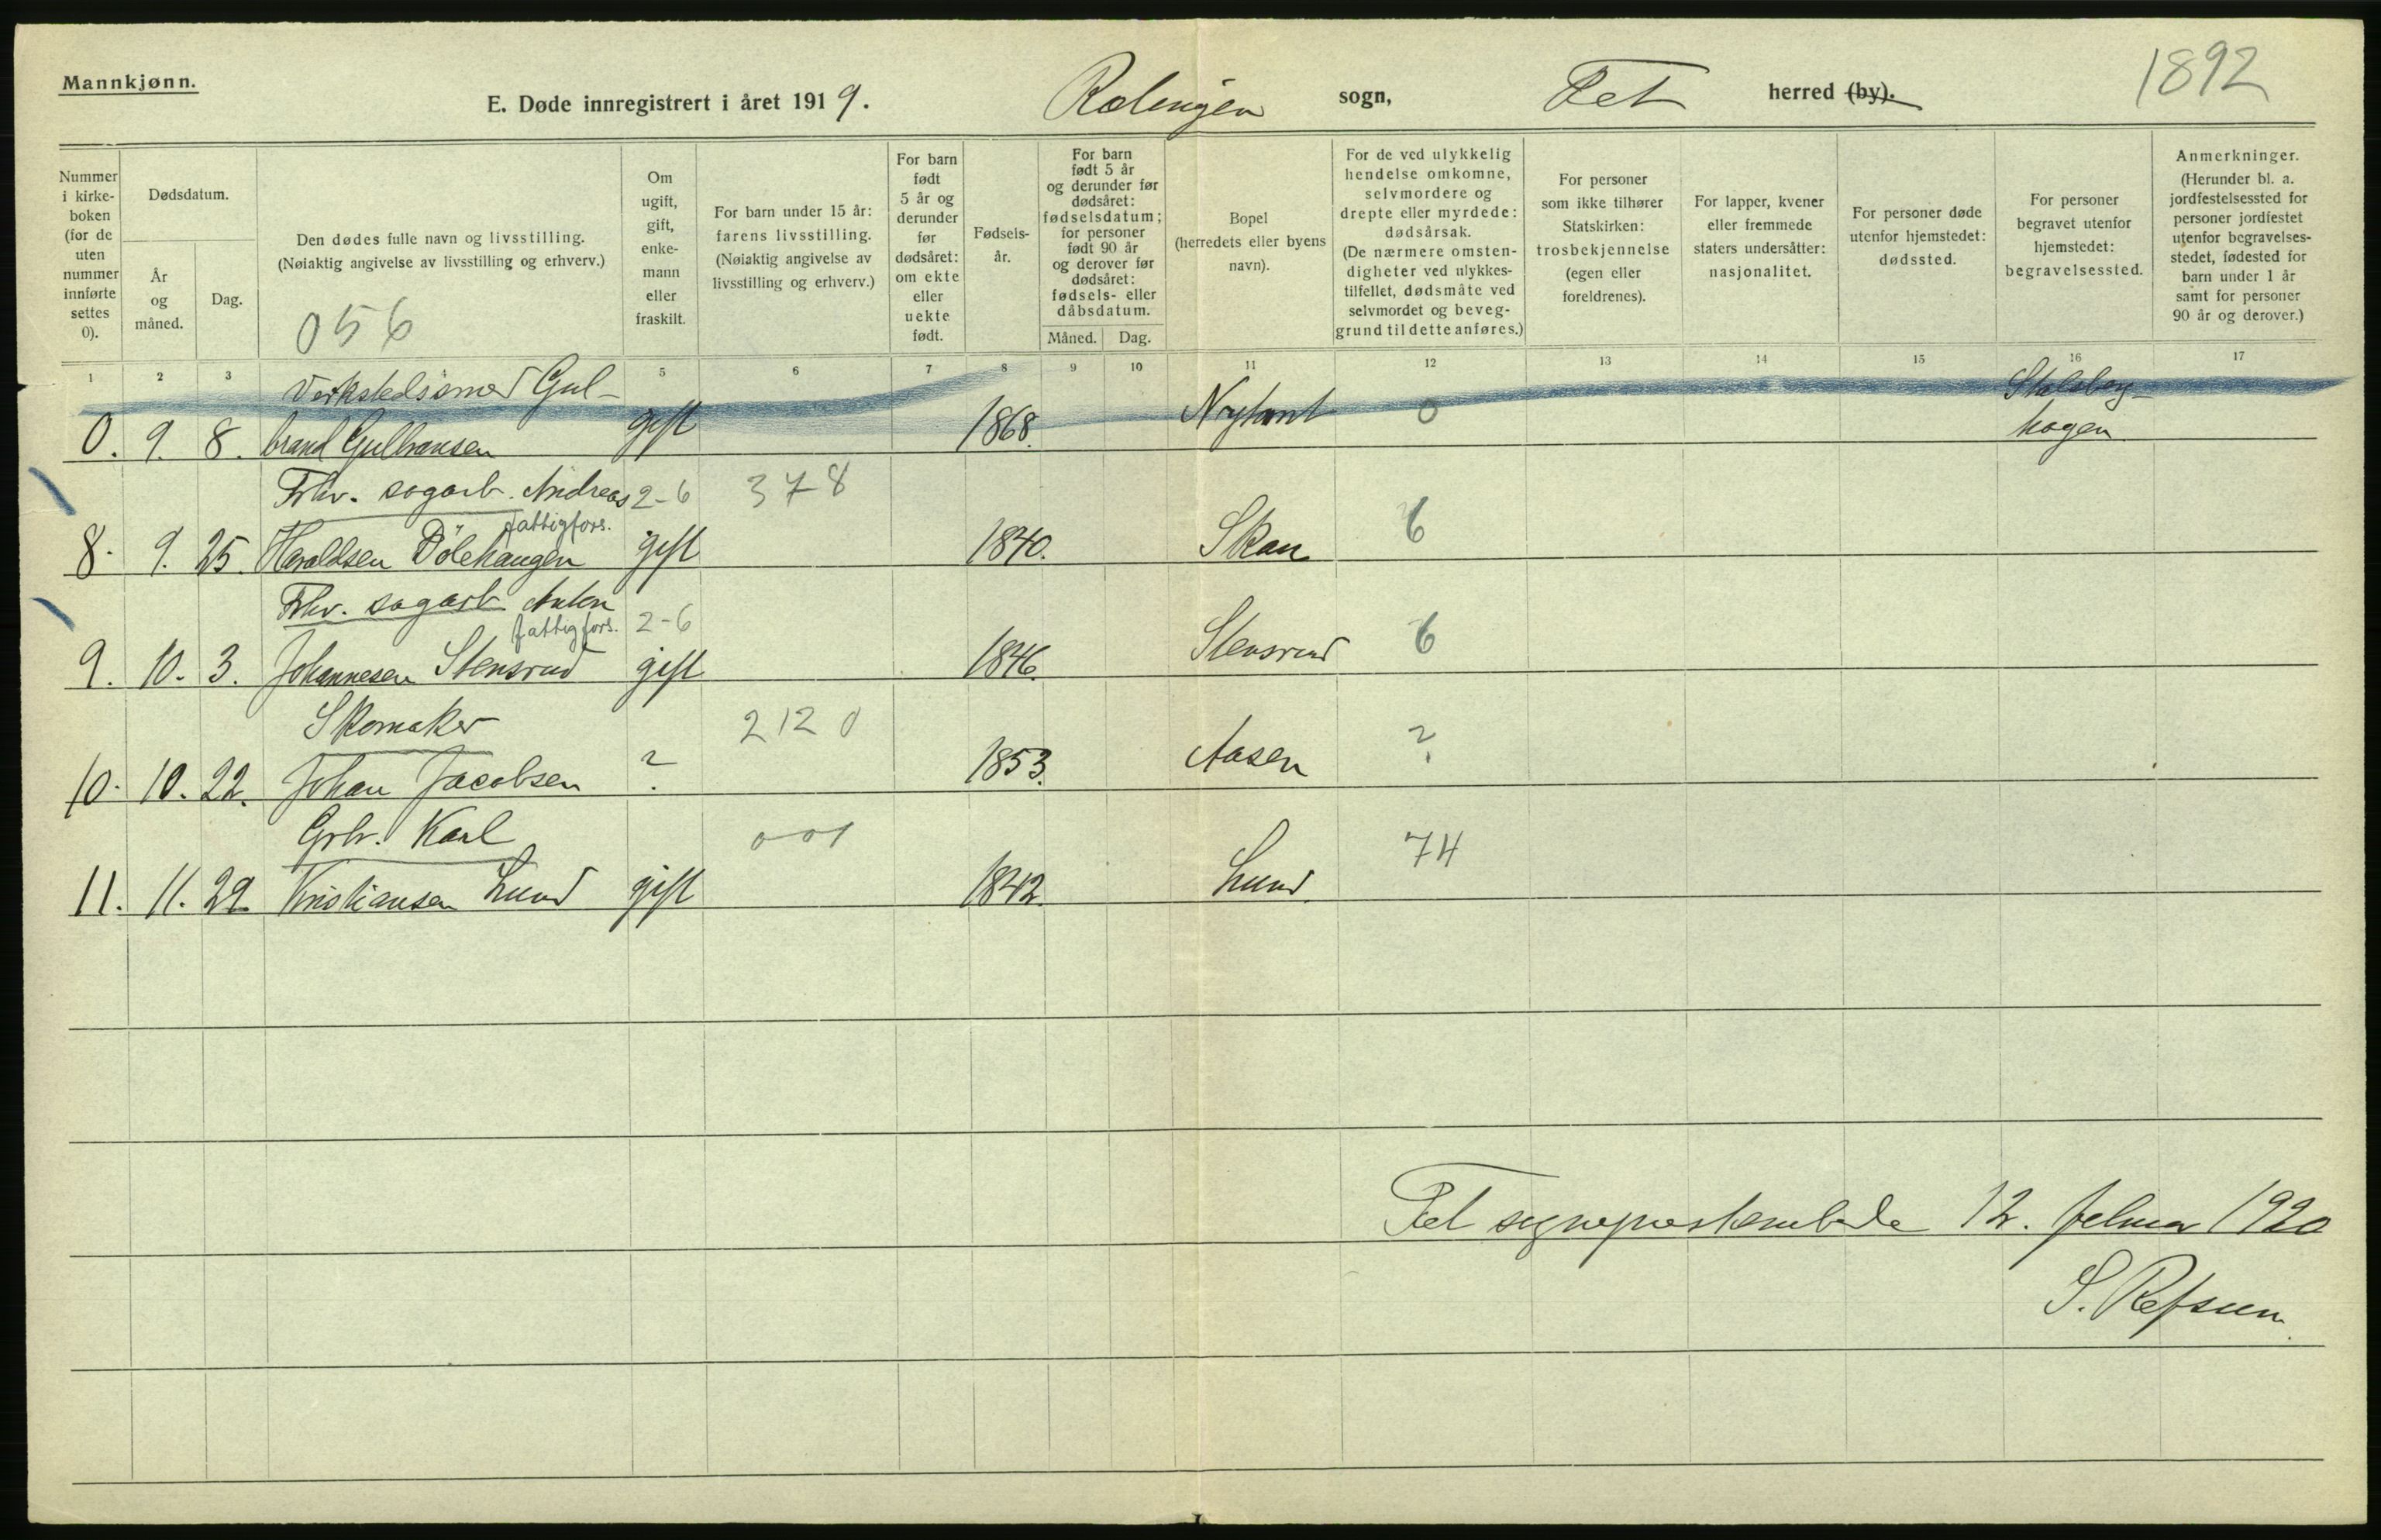 Mannkjønn.
E. Døde innregistrert i året 1919. Rælingen sogn, Fet herred (by).
1892
Nummer i kirke-boken (for de uten nummer innførte settes 0).
Dødsdatum.
År og måned.
Dag.
Den dødes fulle navn og livsstilling.
(Nøiaktig angivelse av livsstilling og erhverv.)
056
Om ugift, gift, enke-mann eller fraskilt.
For barn under 15 år: farens livsstilling.
(Nøiaktig angivelse av livsstilling og erhverv.)
For barn født 5 år og derunder før dødsåret: om ekte eller uekte født.
Fødsels-år.
For barn født 5 år og derunder før dødsåret: fødselsdatum; for personer født 90 år og derover før dødsåret: fødsels- eller dåbsdatum.
Måned. Dag.
Bopel (herredets eller byens navn).
For de ved ulykkelig hendelse omkomne, selvmordere og drepte eller myrdede: dødsårsak.
(De nærmere omsten-digheter ved ulykkes-tilfellet, dødsmåte ved selvmordet og beveg-grund til dette anføres.)
For personer som ikke tilhører Statskirken: trosbekjennelse (egen eller foreldrenes).
For lapper, kvener eller fremmede staters undersåtter: nasjonalitet.
For personer døde utenfor hjemstedet: dødssted.
For personer begravet utenfor hjemstedet: begravelsessted.
Anmerkninger.
(Herunder bl. a. jordfestelsessted for personer jordfestet utenfor begravelses-stedet, fødested for barn under 1 år samt for personer 90 år og derover.)
1 2 3 5 6 7 8 9 10 11 12 13 14 15 16 17
Verkstedsarb Gul-
Stalsberg-
0. 9. 8. brand Gulbransen gift 1868. 0 hagen
Fhv. sagarb. Andreas 2-6 378
fattigfors.
8. 9. 25. Haraldsen Dölehaugen gift 1840. Skau 6
Fhv. sagarb. Anton 2-6
fattigfors.
9. 10. 3. Johannesen Stensrud gift 1846. Stensrud 6
Skomaker 2120
10. 10. 22. Johan Jacobsen ? 1853. Aasen ?
Grbr. Karl 001
11. 11. 29. Kristiansen Lund gift 1842. Lund. 74
Fet sogneprestembede 12. februar 1920
S. Refsum.